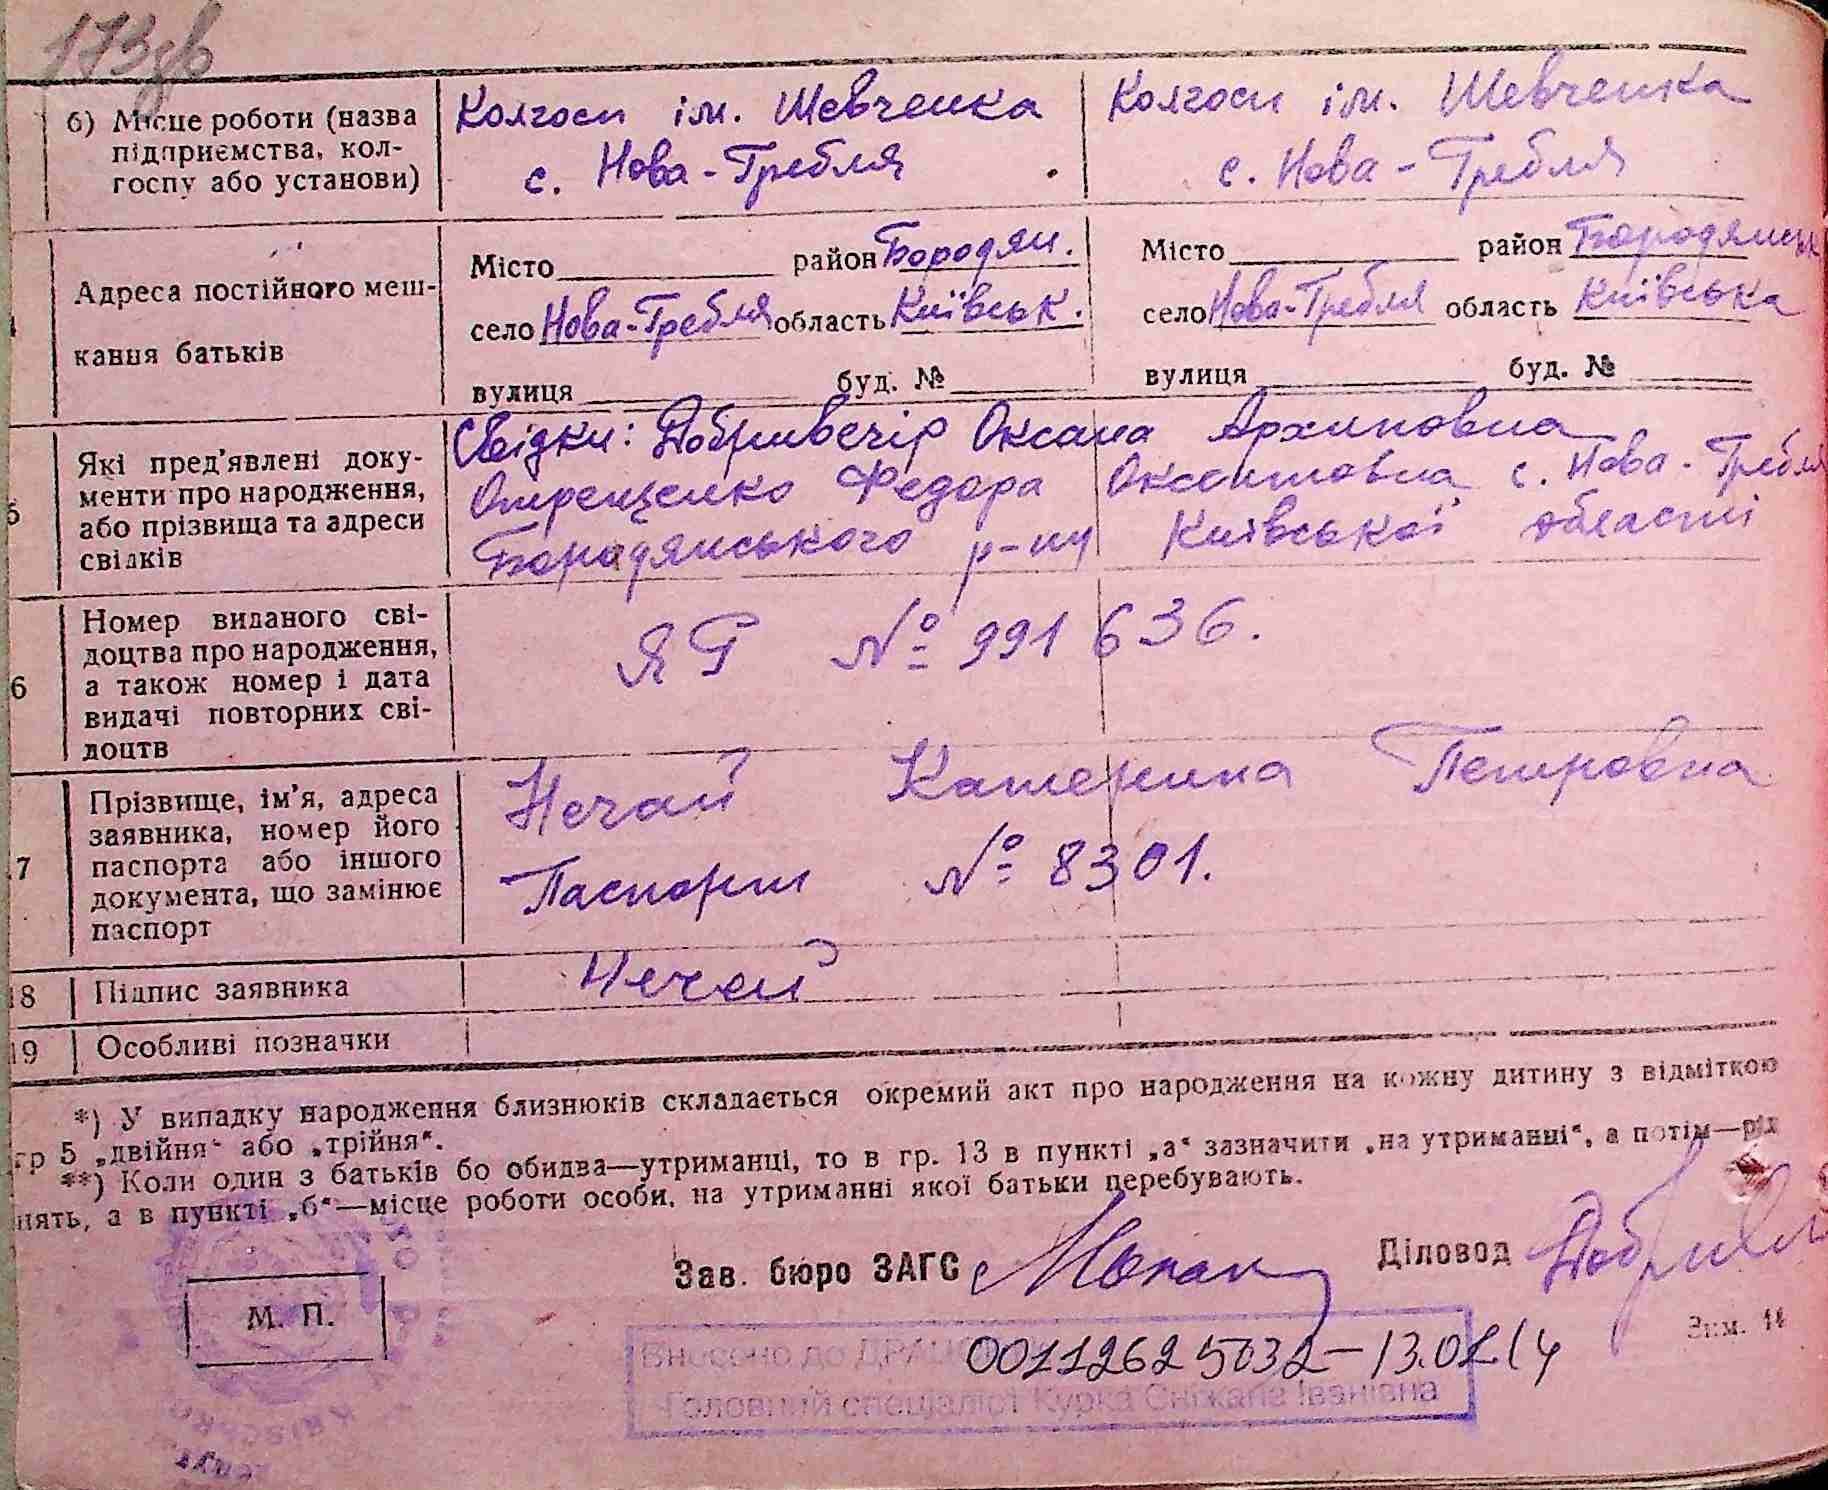 173зв
б) Місце роботи (назва
підприємства, кол-
госпу або установи)
Колгосп ім. Шевченка
с. Нова-Гребля
Колгосп ім. Шевченка
с. Нова-Гребля
Адреса постійного меш-
кання батьків
Місто район Бородян.
село Нова-Гребля область Київськ.
вулиця буд. №
Місто район Бородянськ
село Нова-Гребля область Київська
вулиця буд. №
5
Які пред'явлені доку-
менти про народження,
або прізвища та адреси
свідків
Свідки: Добривечір Оксана Архиповна
Федора Оксентовна с. Нова-Гребля
Бородянського р-ну Київської області
6
Номер виданого сві-
доцтва про народження,
а також номер і дата
видачі повторних сві-
доцтв
ЯР № 991636.
7
Прізвище, ім'я, адреса
заявника, номер його
паспорта або іншого
документа, що замінює
паспорт
Нечай Катерина Петровна
Паспорт № 8301.
18
Підпис заявника
Нечай
19
Особливі позначки
*) У випадку народження близнюків складається окремий акт про народження на кожну дитину з відміткою
гр 5 „двійня“ або „трійня“.
**) Коли один з батьків бо обидва—утриманці, то в гр. 13 в пункті „а“ зазначити „на утриманні“, а потім—рід
нять, а в пункті „б“—місце роботи особи, на утриманні якої батьки перебувають.
Зав. бюро ЗАГС
Діловод
М. П.
Зам. 14
Внесено до ДРАЦС 00112625032-13.01.14
Головний спеціаліст Курка Сніжана Іванівна